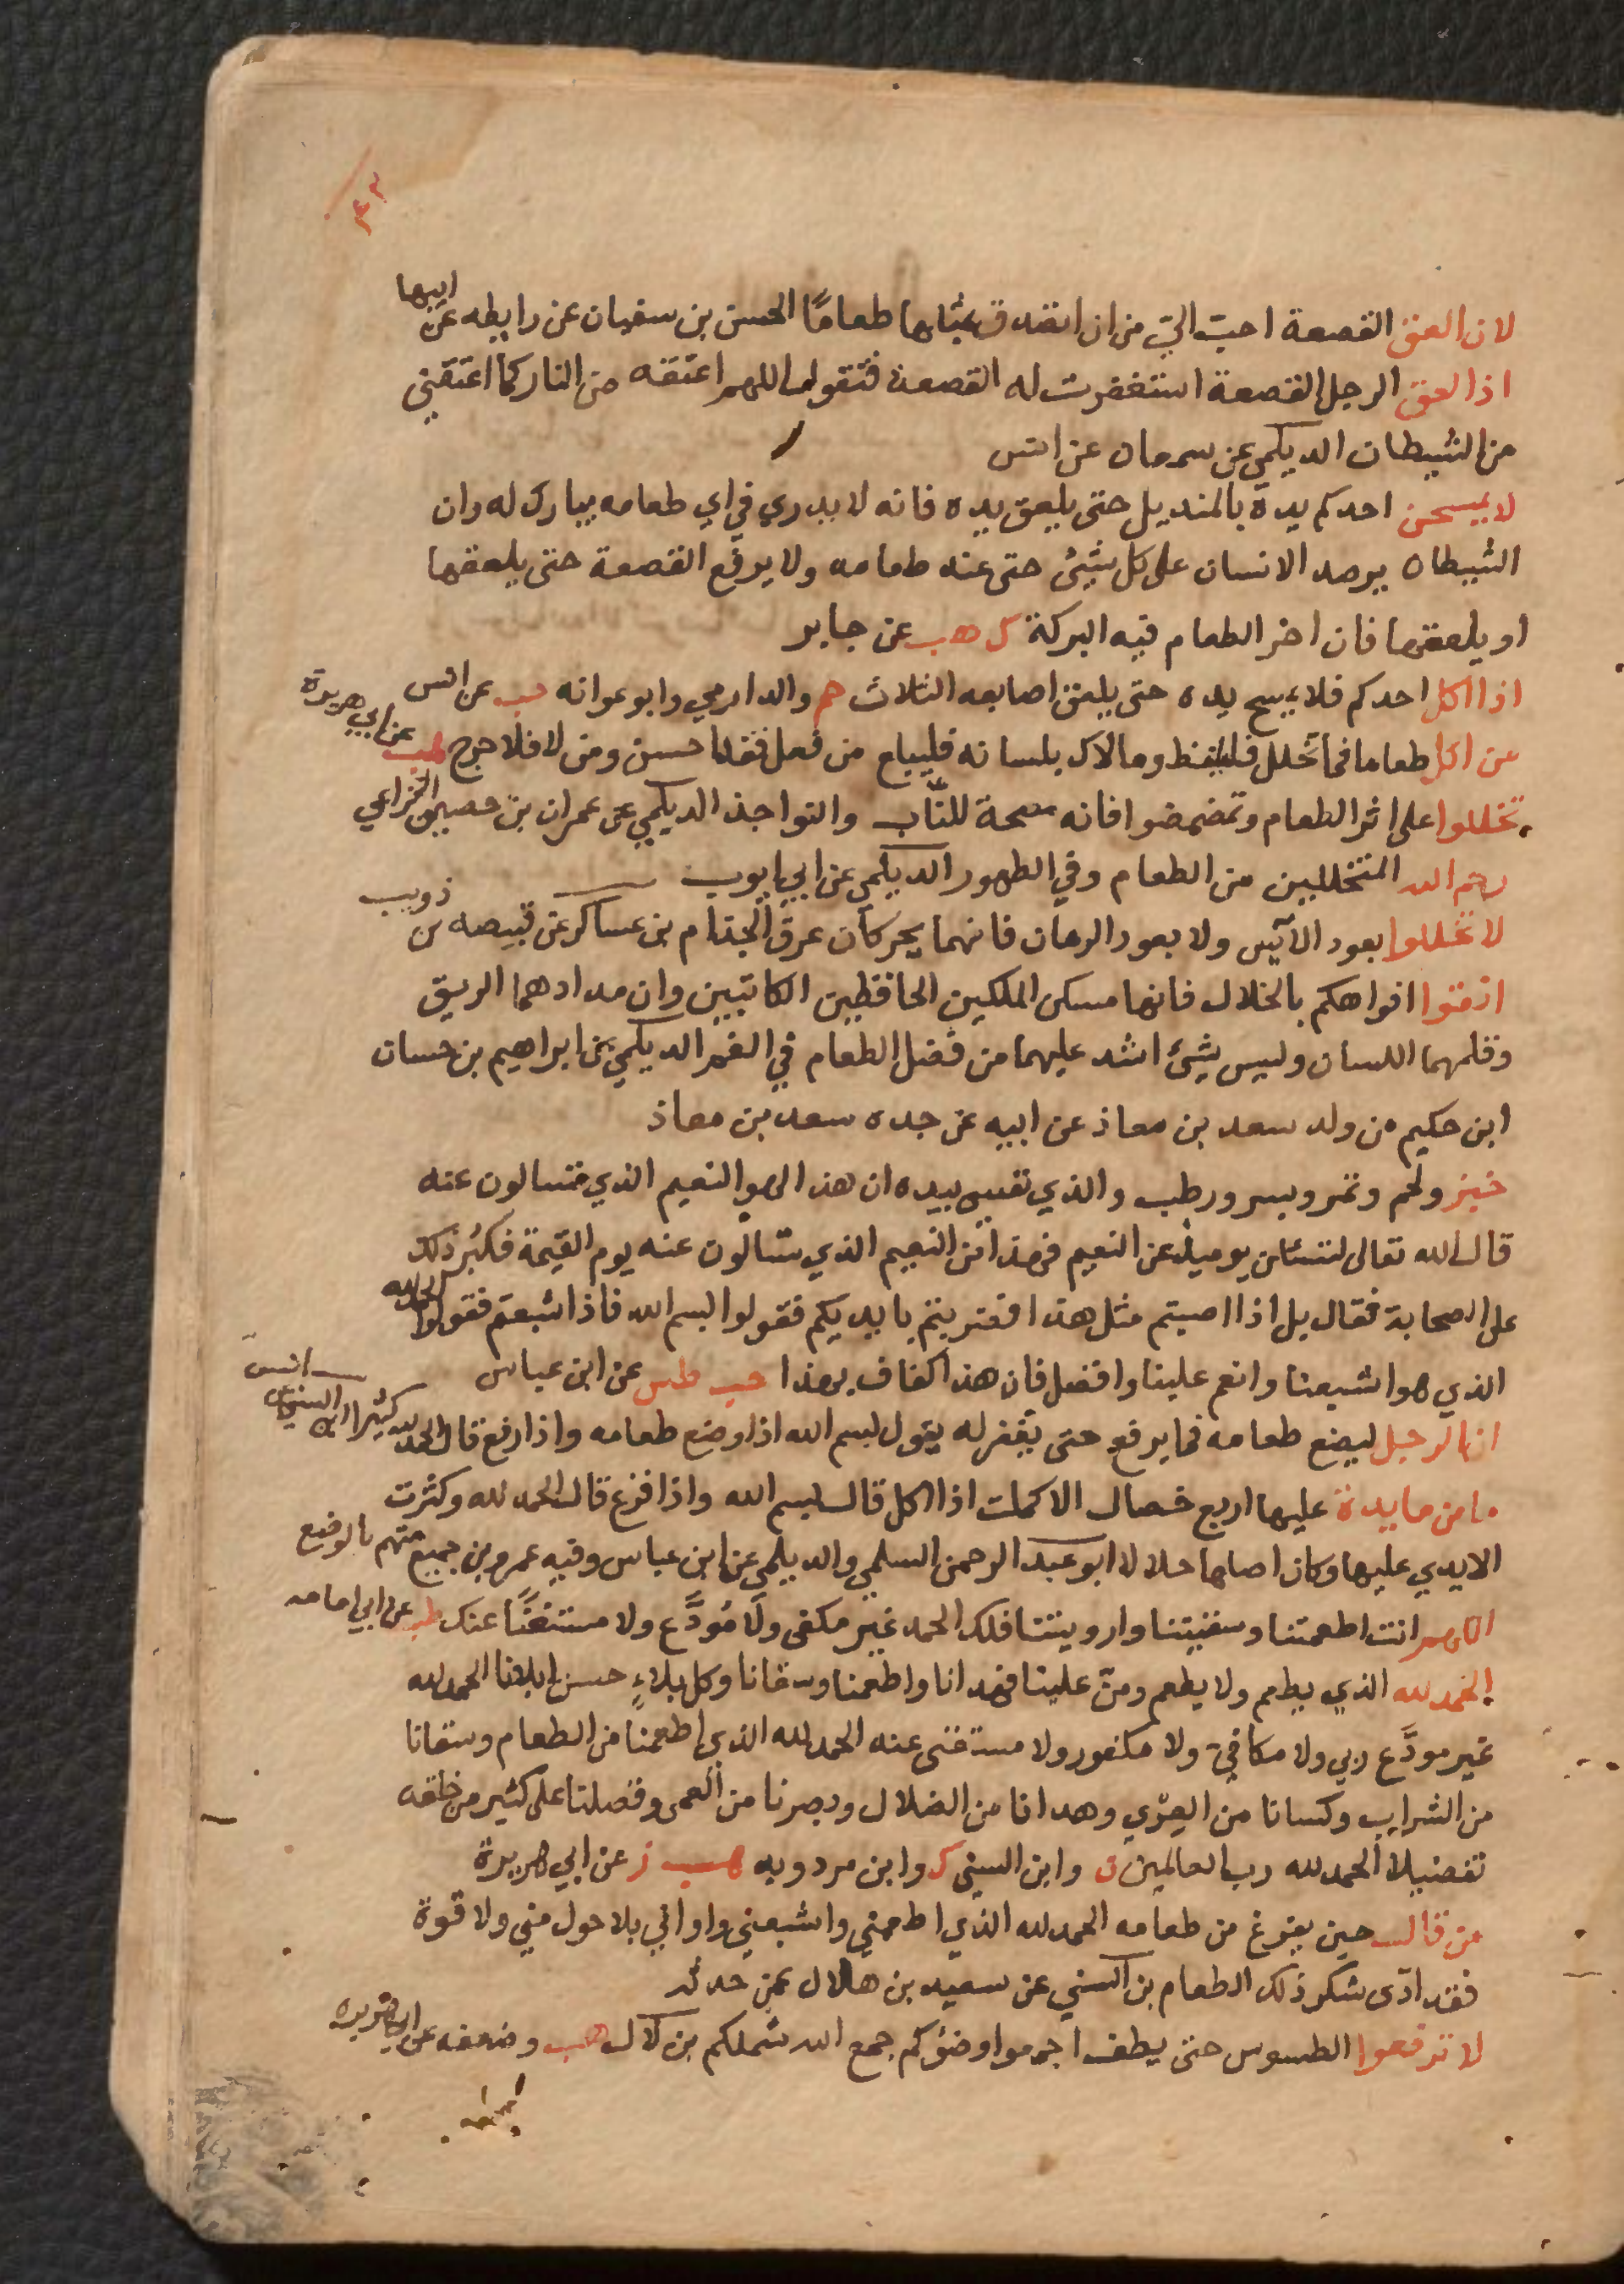 ٤٣
لان العق القصعة احبّ اليّ من ان اتصدق بمثلها طعامًا الحسن بن سفيان عن رابطه عن ابيها
اذا لعق الرجل القصعة استغفرت له القصعة فتقول اللهم اعتقه من النار كما اعتقني
من الشيطان الديلمي عن سمعان عن انس
لا يمسحن احدكم يده بالمنديل حتى يلعق يده فانه لا يدري في اي طعامه يبارك له وان
الشيطان يرصد الانسان على كل شيئ حتى عند طعامه ولا يرفع القصعة حتى يلعقها
او يلعقها فان اخر الطعام فيه البركة ك هب عن جابر
اذا اكل احدكم فلا يمسح يده حتى يلعق اصابعه الثلاث حم والدارمي وابو عوانه حب عن انس
من اكل طعاما فما تخلل فليلفظ وما لاك بلسانه فليبلع من فعل فقد احسن ومن لا فلا حرج هب عن ابي هريرة
تخللوا على اثر الطعام وتمضمضوا فانه مصحة للنّاب والنواجذ الديلمي عن عمران بن حصين الخزاعي
رحم الله المتخللين من الطعام وفي الطهور الديلمي عن ابي ايوب
لا تخللوا بعود الآس ولا بعود الرمان فانهما يحركان عرق الجذام بن عساكر عن قبيصه بن ذويب
انقوا افواهكم بالخلال فانها مسكن الملكين الحافظين الكاتبين وان مدادهما الريق
وقلمهما اللسان وليس شيئ اشد عليهما من فضل الطعام في الفم الديلمي عن ابراهيم بن حسان
ابن حكيم من ولد سعد بن معاذ عن ابيه عن جده سعد بن معاذ
خبز ولحم وتمر وبسر ورطب والذي نفسي بيده ان هذا لهو النعيم الذي تسالون عنه
قال الله تعالى لتسئلن يوميذ عن النعيم فهذا من النعيم الذي تسالون عنه يوم القيمة فكبر ذلك
على الصحابة فقال بل اذا اصبتم مثل هذا فضربتم بايديكم فقولوا بسم الله فاذا شبعتم فقولوا الحمد لله
الذي هو اشبعنا وانعم علينا وافضل فان هذا كفاف بهذا حب طس عن ابن عباس
ان الرجل ليضع طعامه فما يرفع حتى يغفر له يقول بسم الله اذا وضع طعامه واذا رفع قال الحمد لله كثيرا ابن السني عن انس
ما من مايدة عليها اربع خصال الا كملت اذا اكل قال بسم الله واذا فرغ قال الحمد لله وكثرت
الايدي عليها وكان اصلها حلالا ابو عبد الرحمن السلمي والديلمي عن ابن عباس وفيه عمرو بن جميع متهم بالوضع
اللهم انت اطعمتنا وسقيتنا وارويتنا فلك الحمد غير مكفى ولا مُودَّع ولا مستغنًا عنك طب عن ابي امامه
الحمد لله الذي يطعم ولا يطعم ومنّ علينا فهدانا واطعمنا وسقانا وكل بلاءٍ حسن ابلانا الحمد لله
غير مودَّع ربي ولا مكافئ ولا مكفور ولا مستغنى عنه الحمد لله الذي اطعمنا من الطعام وسقانا
من الشراب وكسانا من العري وهدانا من الضلال وبصرنا من العمى وفضلنا على كثير من خلقه
تفضيلا الحمد لله رب العالمين ن وابن السني ك وابن مردويه هب ز عن ابي هريرة
من قال حين يفرغ من طعامه الحمد لله الذي اطعمني واشبعني واواني بلا حول مني ولا قوة
فقد ادّى شكر ذلك الطعام بن السني عن سعيد بن هلال عمن حدثه
لا ترفعوا الطسوس حتى يطف اجمعوا وضوكم جمع الله شملكم بن لال هب وضعفه عن ابي هريرة